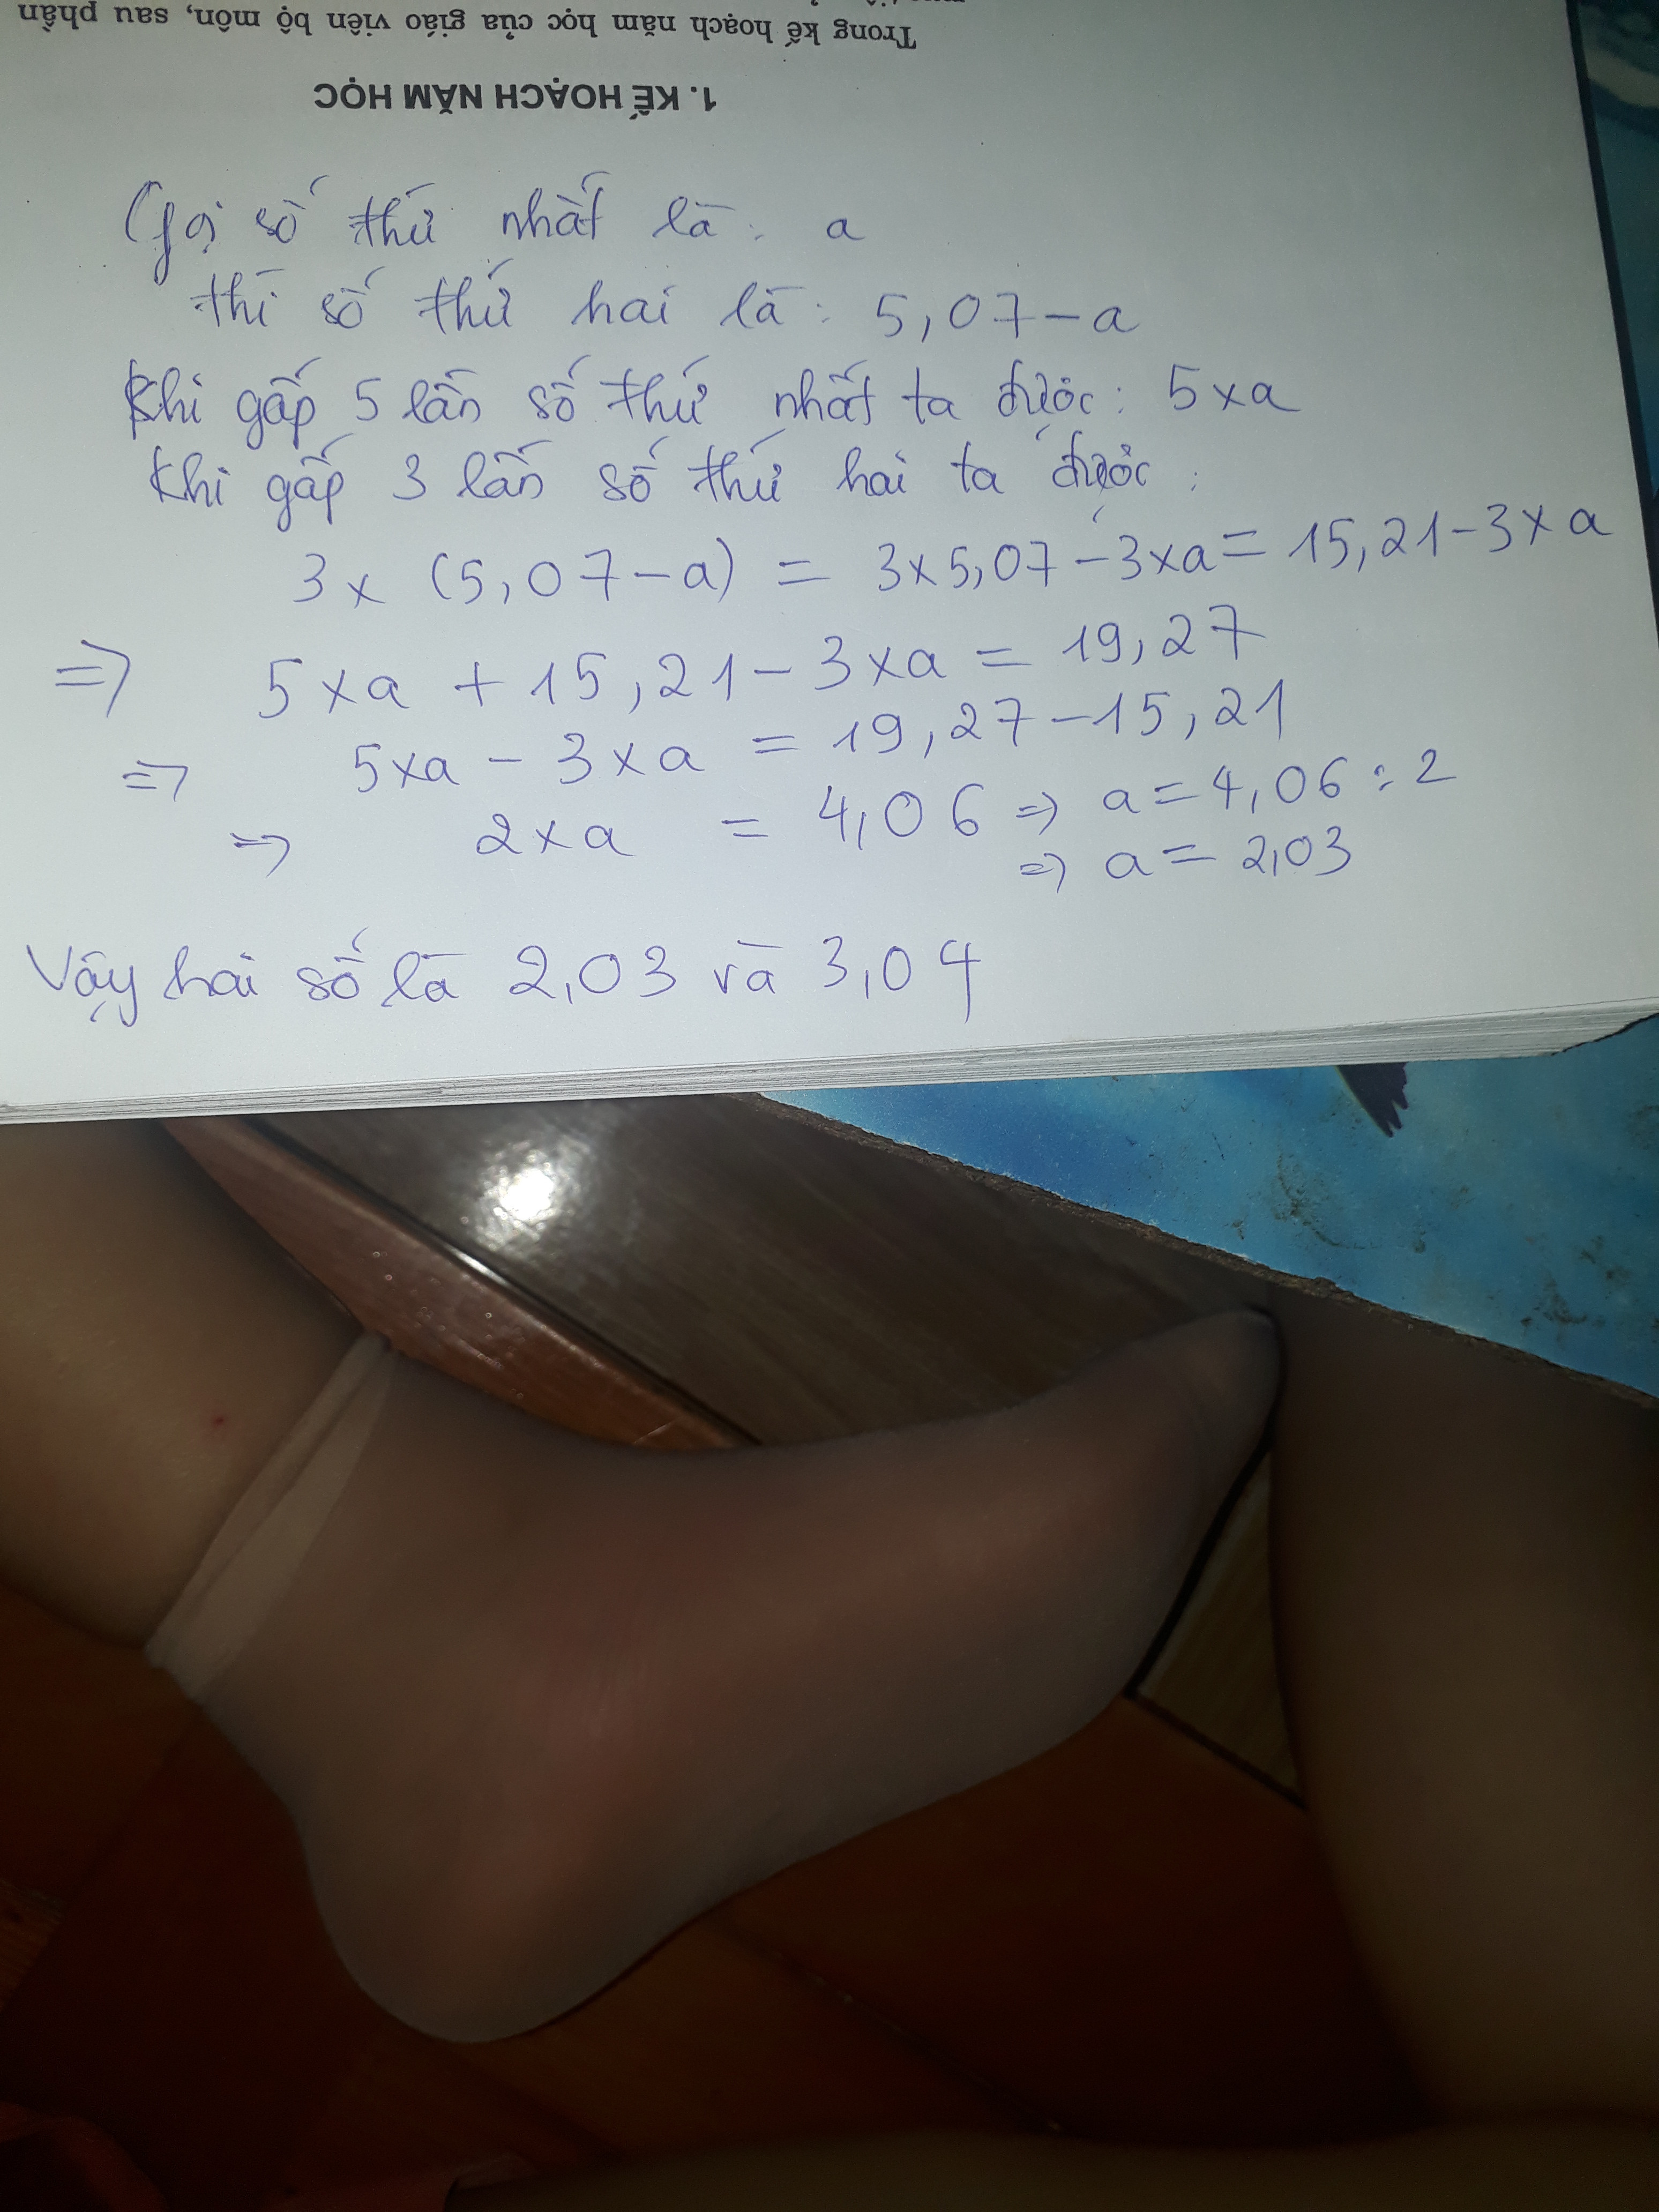 Trong kế hoạch năm học của giáo viên bộ môn, sau phần
1. KẾ HOẠCH NĂM HỌC
Gọi số thứ nhất là: a
thì số thứ hai là: 5,07-a
Khi gấp 5 lần số thứ nhất ta được: 5xa
Khi gấp 3 lần số thứ hai ta được:
3x (5,07-a) = 3x5,07-3xa= 15,21-3xa
=> 5xa + 15,21-3xa = 19,27
=> 5xa - 3xa = 19,27-15,21
=> 2xa = 4,06 => a=4,06:2
=> a= 2,03
Vậy hai số là 2,03 và 3,04